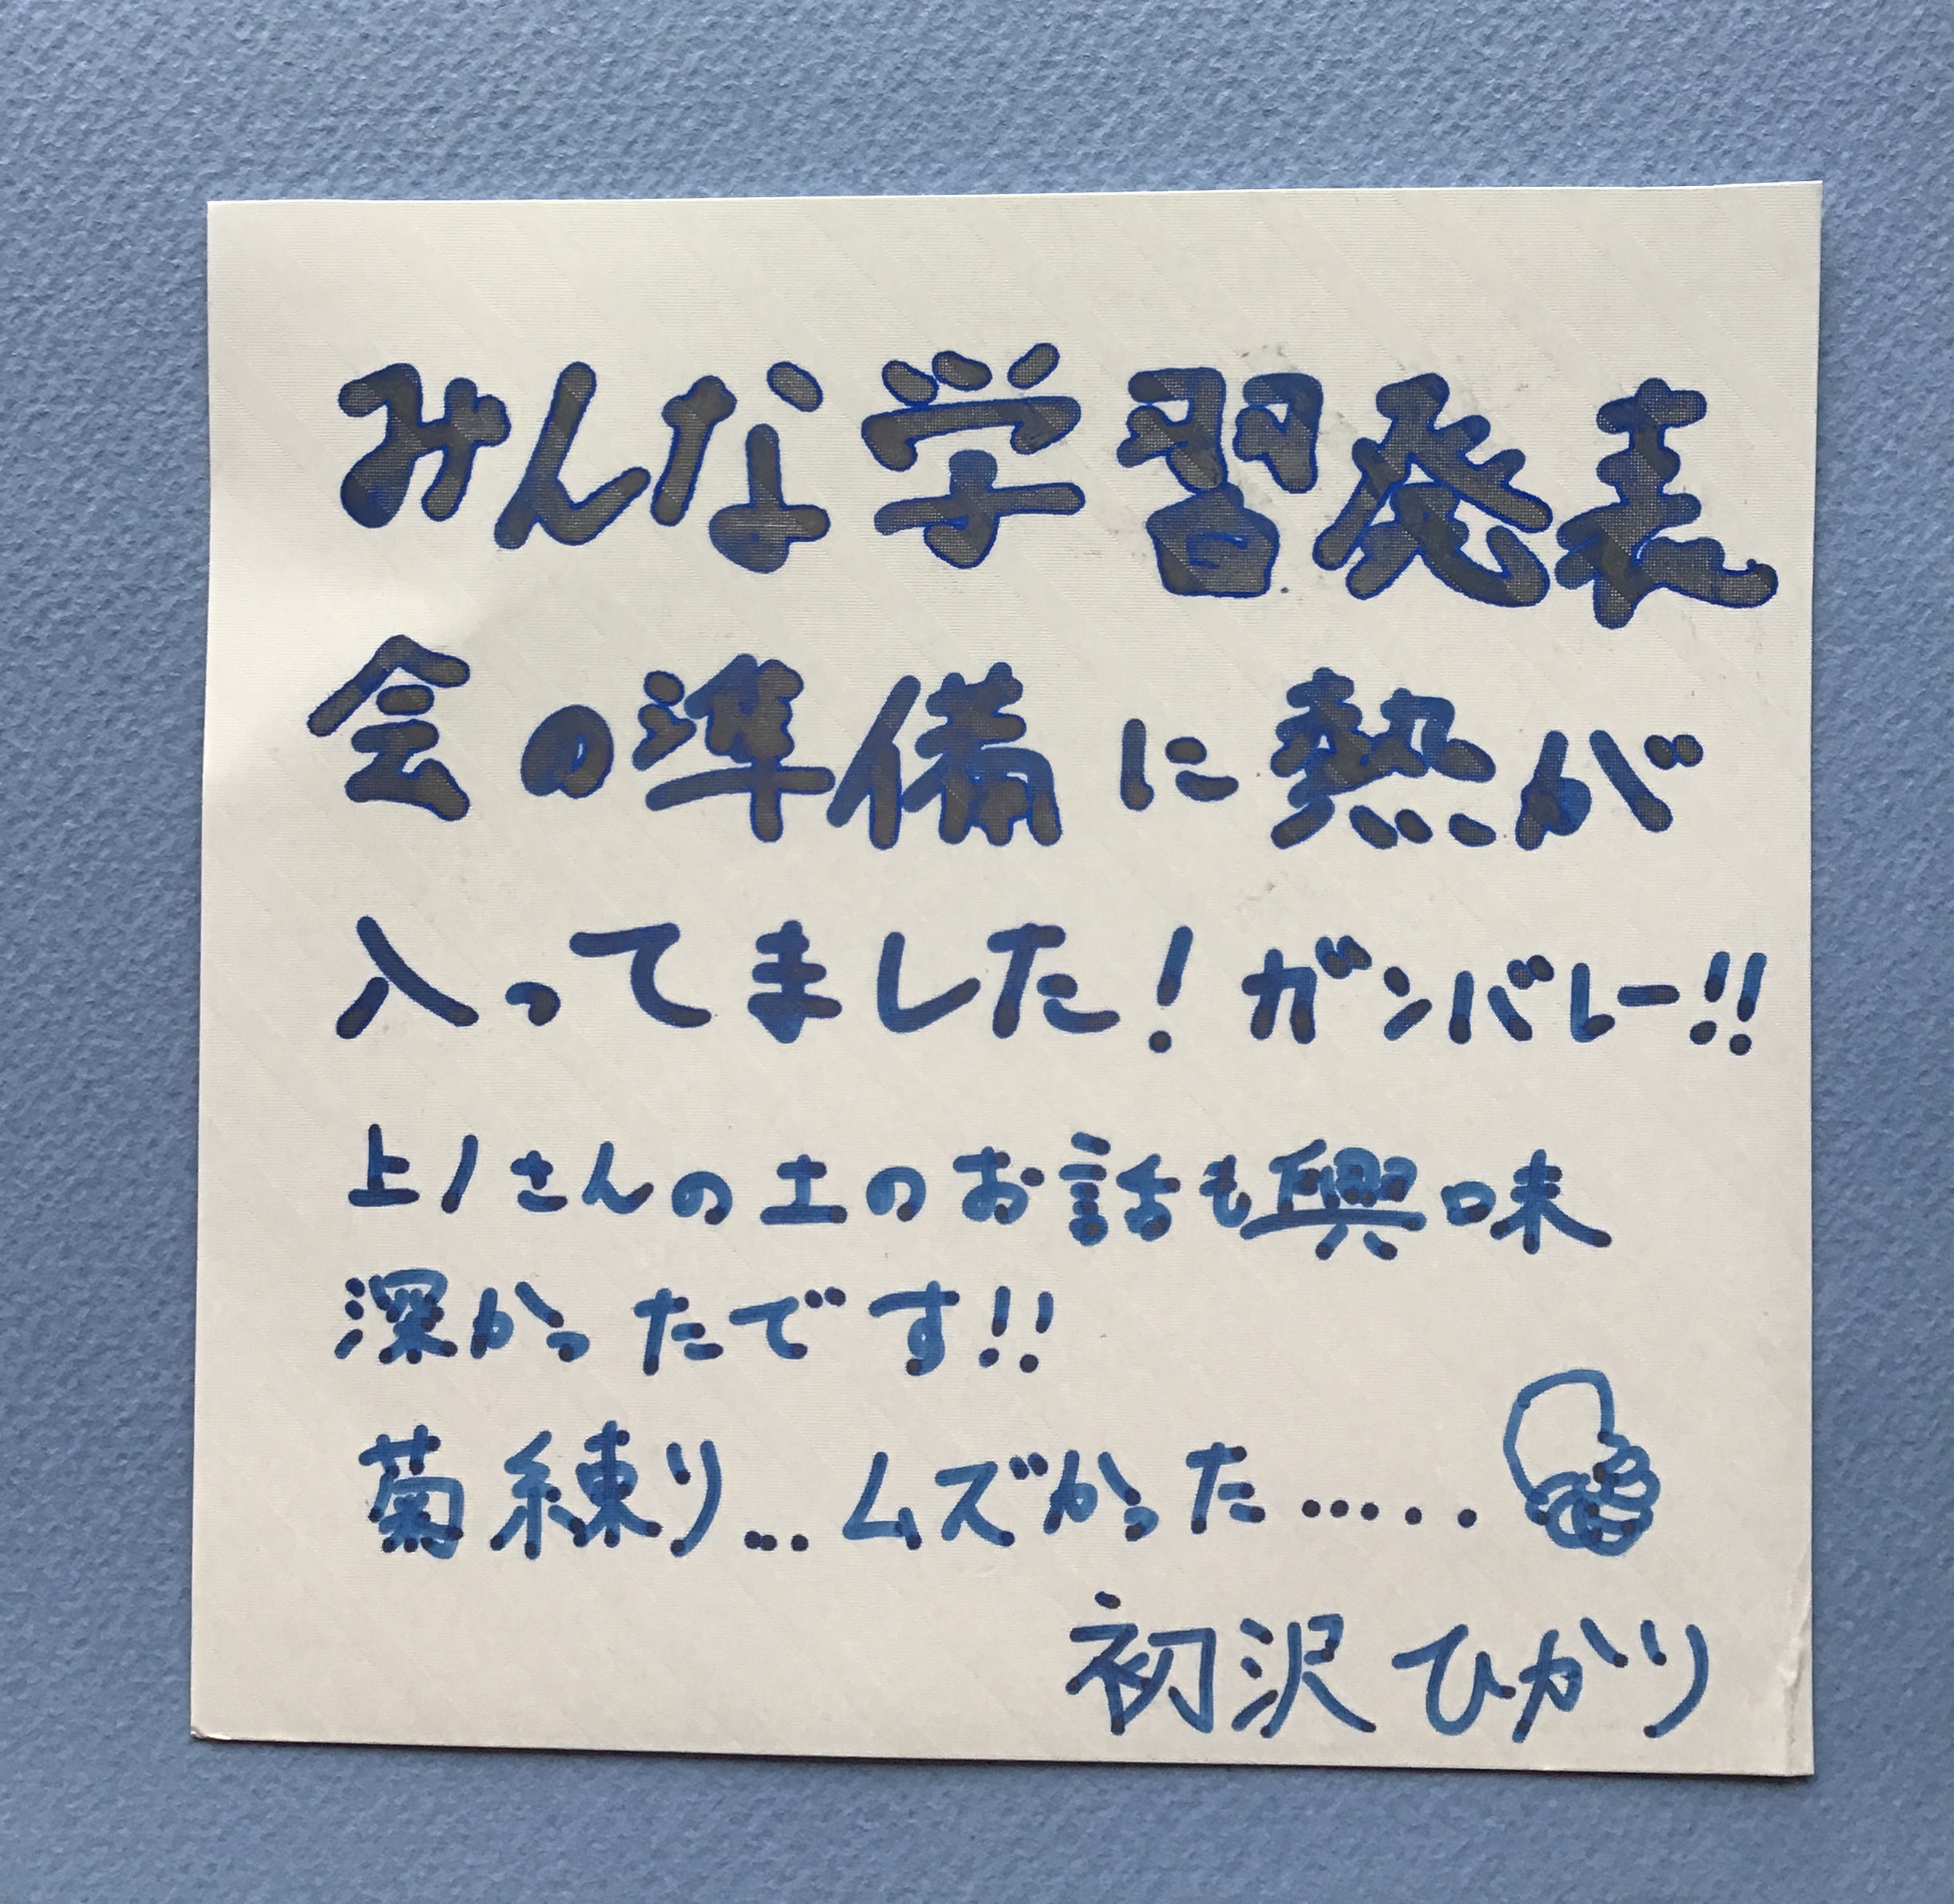 みんな学習発表
会の準備に熱が
入ってました！ガンバレー!!
上ノさんの土のお話も興味
深かったです!!
菊練り…ムズかった……
初沢ひかり